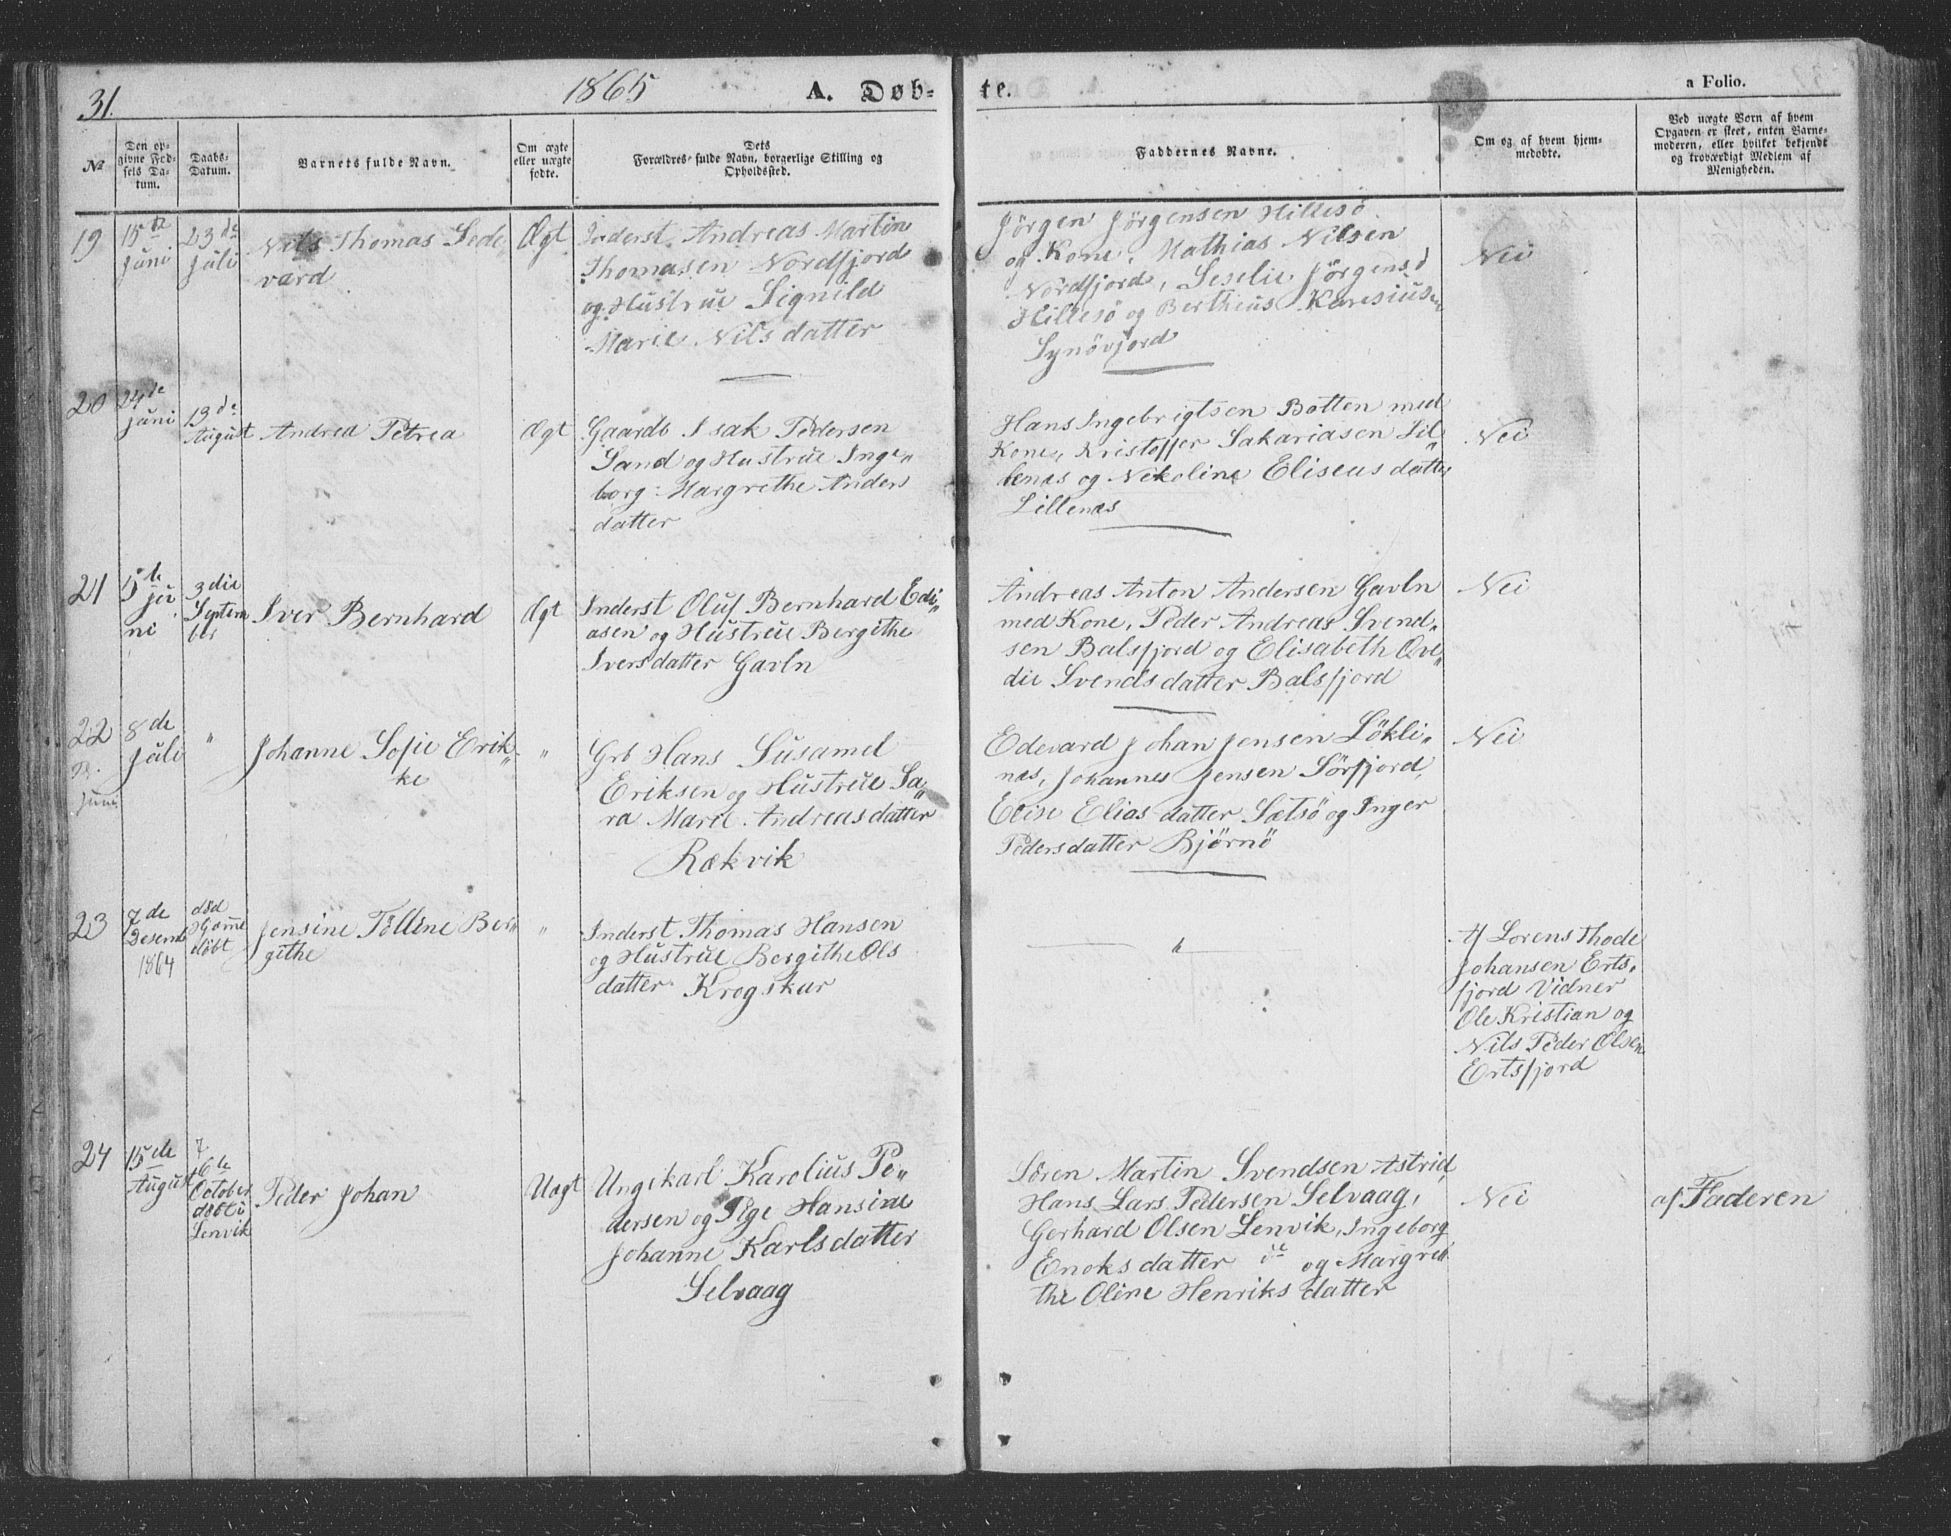 31.
1865
A. Døb-
te.
a Folio.
№
Den op-
givne Fød-
sels Da-
tum.
Daabs-
Datum.
Barnets fulde Navn.
Om ægte
eller uægte
fødte.
Dets
Forældres fulde Navn, borgerlige Stilling og
Opholdssted.
Faddernes Navne.
Om og af hvem hjem-
medøbte.
Ved uægte Born af hvem
Opgaven er skeet, enten Barne-
moderen, eller hvilket bekjendt
og troværdigt Medlem af
Menigheden.
19
15de
Juni
23de
Juli
Nils Thomas Sede
vard
Ægt
Inderst. Andreas Martin
Thomasen Nordfjord
og Hustrue Signild
Marie Nilsdatter
Jörgen Jörgensen Hillesö
og Kone, Mathias Nilsen
Nordfjord, Seselie Jörgensd
Hillesö og Bertheus Karesiusen
Synövjord
Nei
20
24de
Juni
13de
August
Andrea Petrea
Ægt
Gaardb Isak Pedersen
Sand og Hustrue Inge„
borg Margrethe Anders
datter
Hans Ingebrigtsen Botten med
Kone, Kristoffer Sakariasen Lil„
lenæs og Nekoline Eliseusdatter
Lillenæs
Nei
21
15de
Ju
ni
3die
Septem
ber
Iver Bernhard
Ægt
Inderst Oluf Bernhard Edi„
asen og Hustrue Bergithe
Iversdatter Gavln
Andreas Anton Andersen Gavln
med Kone, Peder Andreas Svend„
sen Balsfjord og Elisabeth Ove„
die Svendsdatter Balsfjord
Nei
22
8de
Juli
"
Juni
Johanne Sofie Erik„
ke
"
Grb Hans Susamel
Eriksen og Hustrue Sa„
ra Marie Andreasdatter
Rækvik
Edevard Johan Jensen Lökli„
næs, Johannes Jensen Sörfjord,
Elise Eliasdatter Sætsö og Inger
Pedersdatter Björnö
Nei
23
7de
Desemb
1864
död
Hjemme
döbt
Jensine Tolline Ber„
githe
"
Inderst Thomas Hansen
og Hustrue Bergithe Ols
datter Krogskar
"
Af Lorens Thode
Johansen Erts„
fjord Vidner
Ole Kristian og
Nils Peder Olsen
Ertsfjord
24
15de
August
7.
16de
October
döbt i
Lenvik
Peder Johan
Uægt
Ungekarl Karolius Pe„
dersen og Pige Hansine
Johanne Karlsdatter
Selvaag
Sören Martin Svendsen Astrid,
Hans Lars Pedersen Selvaag,
Gerhard Olsen Lenvik, Ingeborg
Enoksdatter de og Margre„
the Oline Henriksdatter
Nei
af Faderen